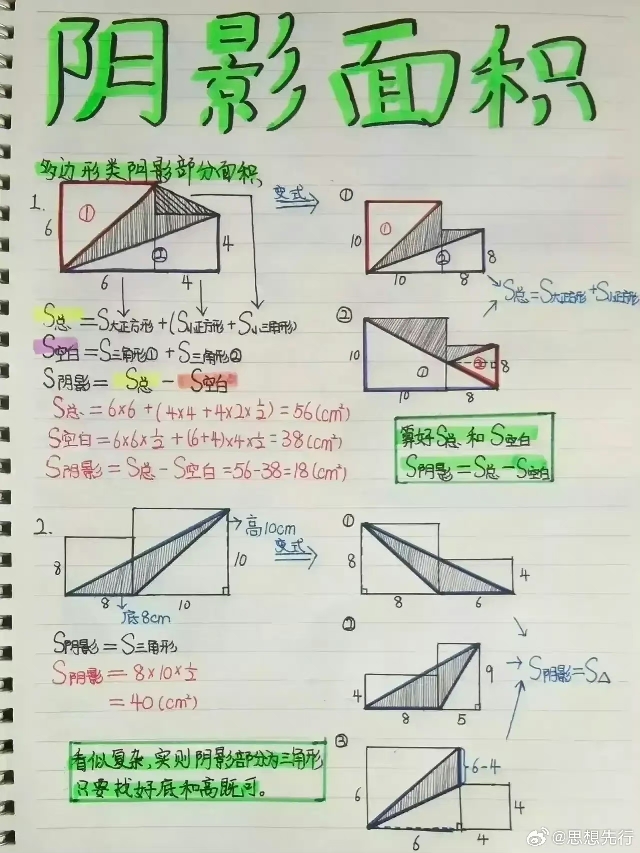 阴影面积
多边形类阴影部分面积
1.
①
6
②
4
6
4
变式
①
①
10
②
8
10
8
S总=S大正方形+S小正方形
②
10
①
②
8
10
8
S总=S大正方形+(S小正方形+S小三角形)
S空白=S三角形①+S三角形②
S阴影=S总-S空白
S总=6×6+(4×4+4×2×½)=56(cm²)
S空白=6×6×½+(6+4)×4×½=38(cm²)
S阴影=S总-S空白=56-38=18(cm²)
算好S总和S空白
S阴影=S总-S空白
2.
高10cm
8
10
8
10
底8cm
变式
①
8
4
8
6
S阴影=S三角形
S阴影=8×10×½
=40(cm²)
②
4
9
8
5
S阴影=S△
③
6-4
6
4
6
4
看似复杂,实则阴影部分为三角形
只要找好底和高既可。
@思想先行